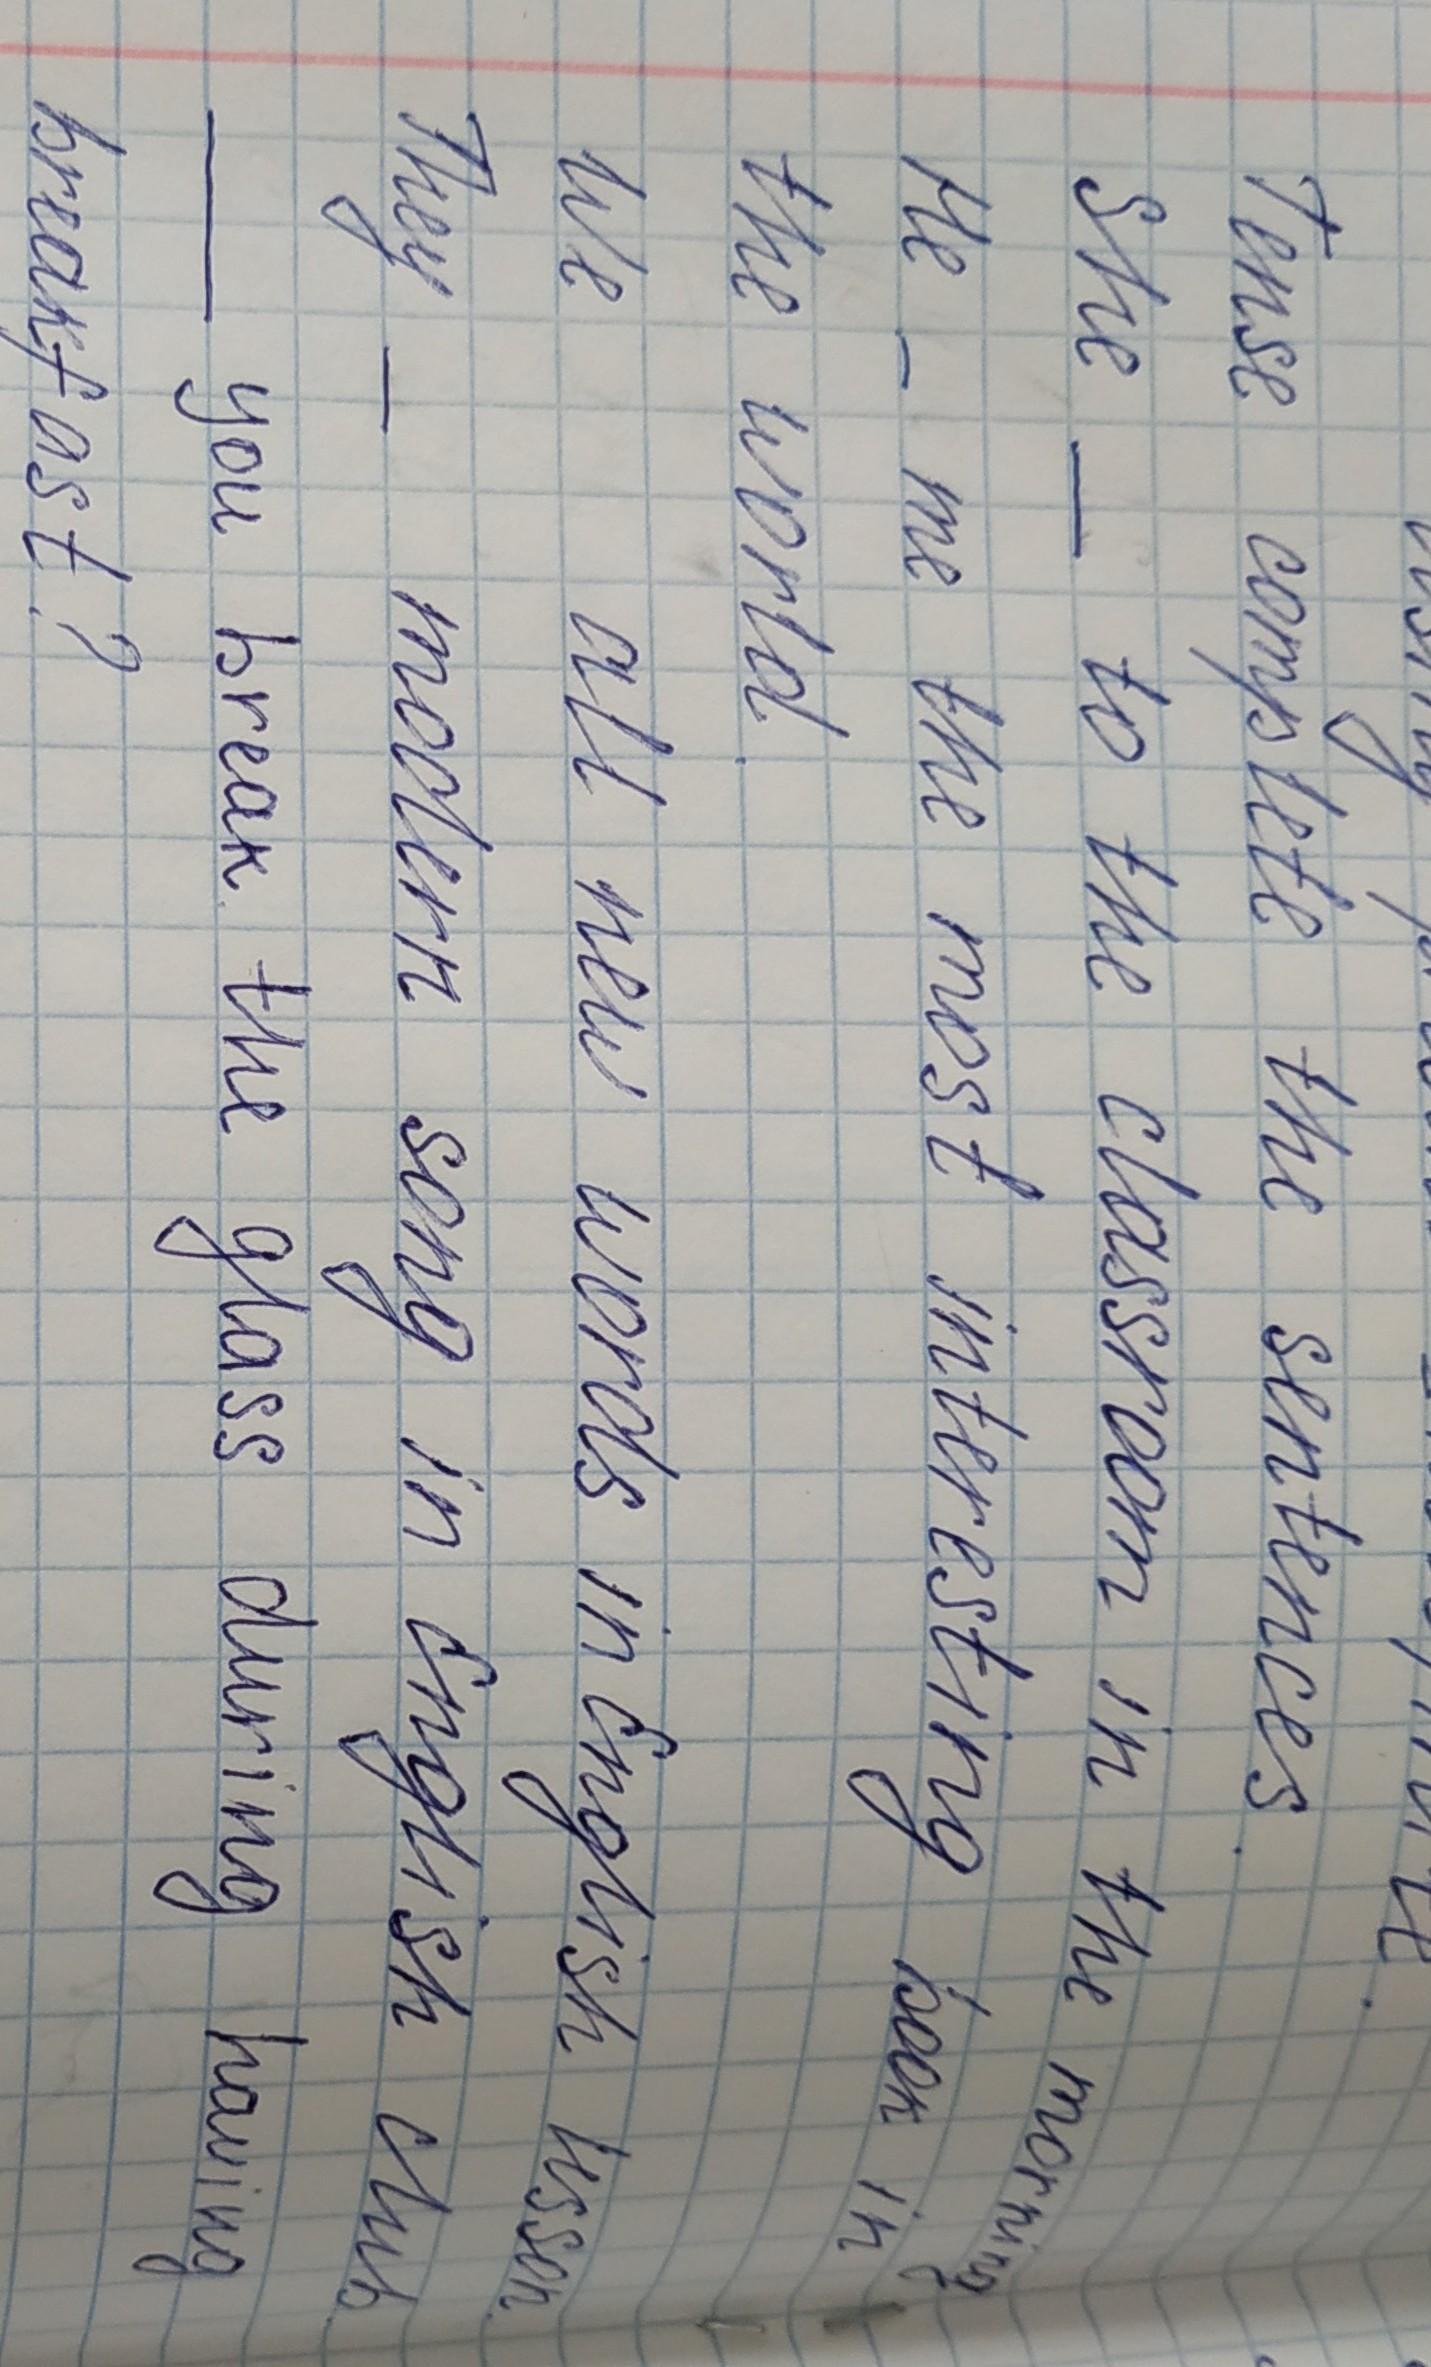 Tense complete the sentences.
She — to the classroom in the morning
He - me the most interesting book in
the world.
We all new words in English lesson.
They — modern song in English club.
—— you break the glass during having
breakfast?